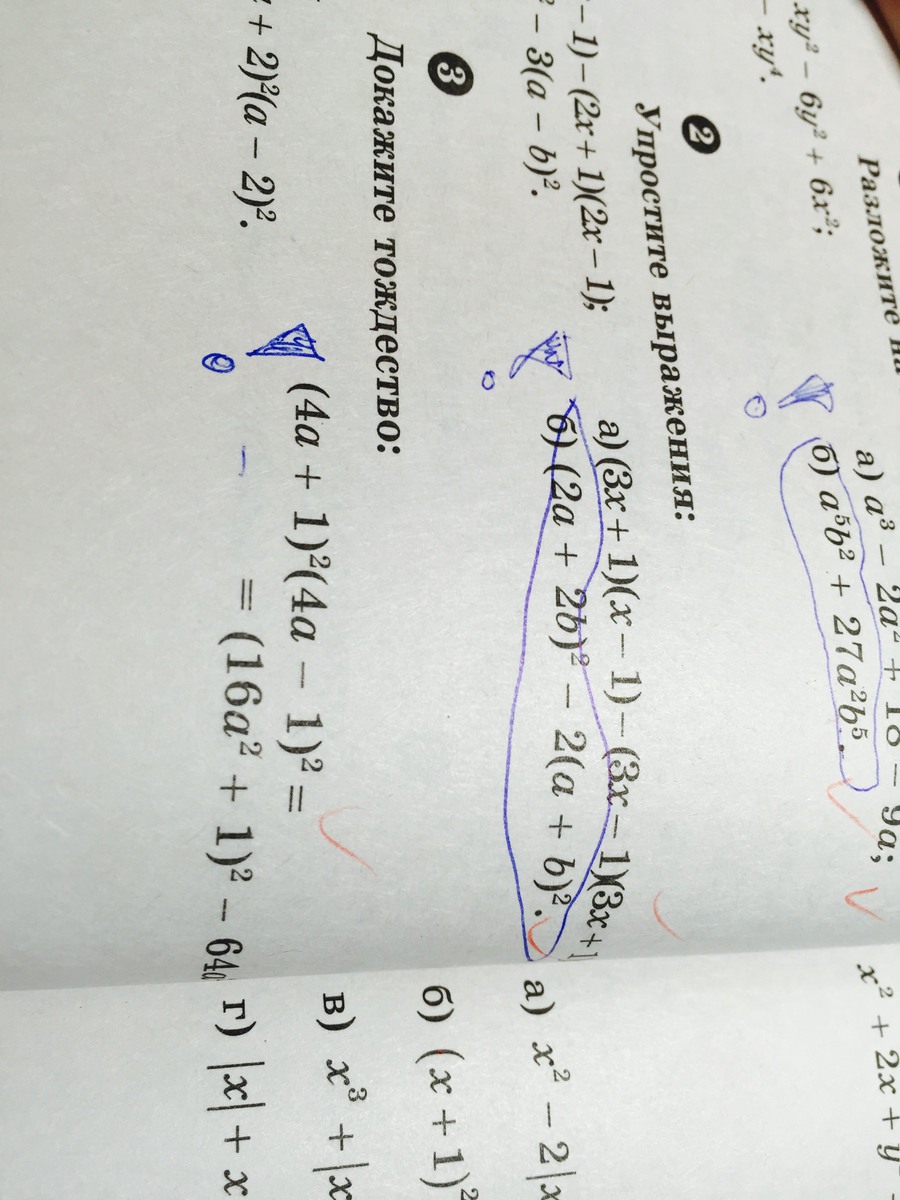 Разложите на
xy² − 6y² + 6x²;
− xy⁴.
а) a³ − 2a² + 18 − 9a;
б) a⁵b² + 27a²b⁵.
❷
Упростите выражения:
− 1) − (2x + 1)(2x − 1);
− 3(a − b)².
а) (3x + 1)(x − 1) − (3x − 1)(3x + 1
б) (2a + 2b)² − 2(a + b)².
❸
Докажите тождество:
+ 2)²(a − 2)².
(4a + 1)²(4a − 1)² =
= (16a² + 1)² − 64
x² + 2x + y
а) x² − 2|x
б) (x + 1)²
в) x³ + |x
г) |x| + x